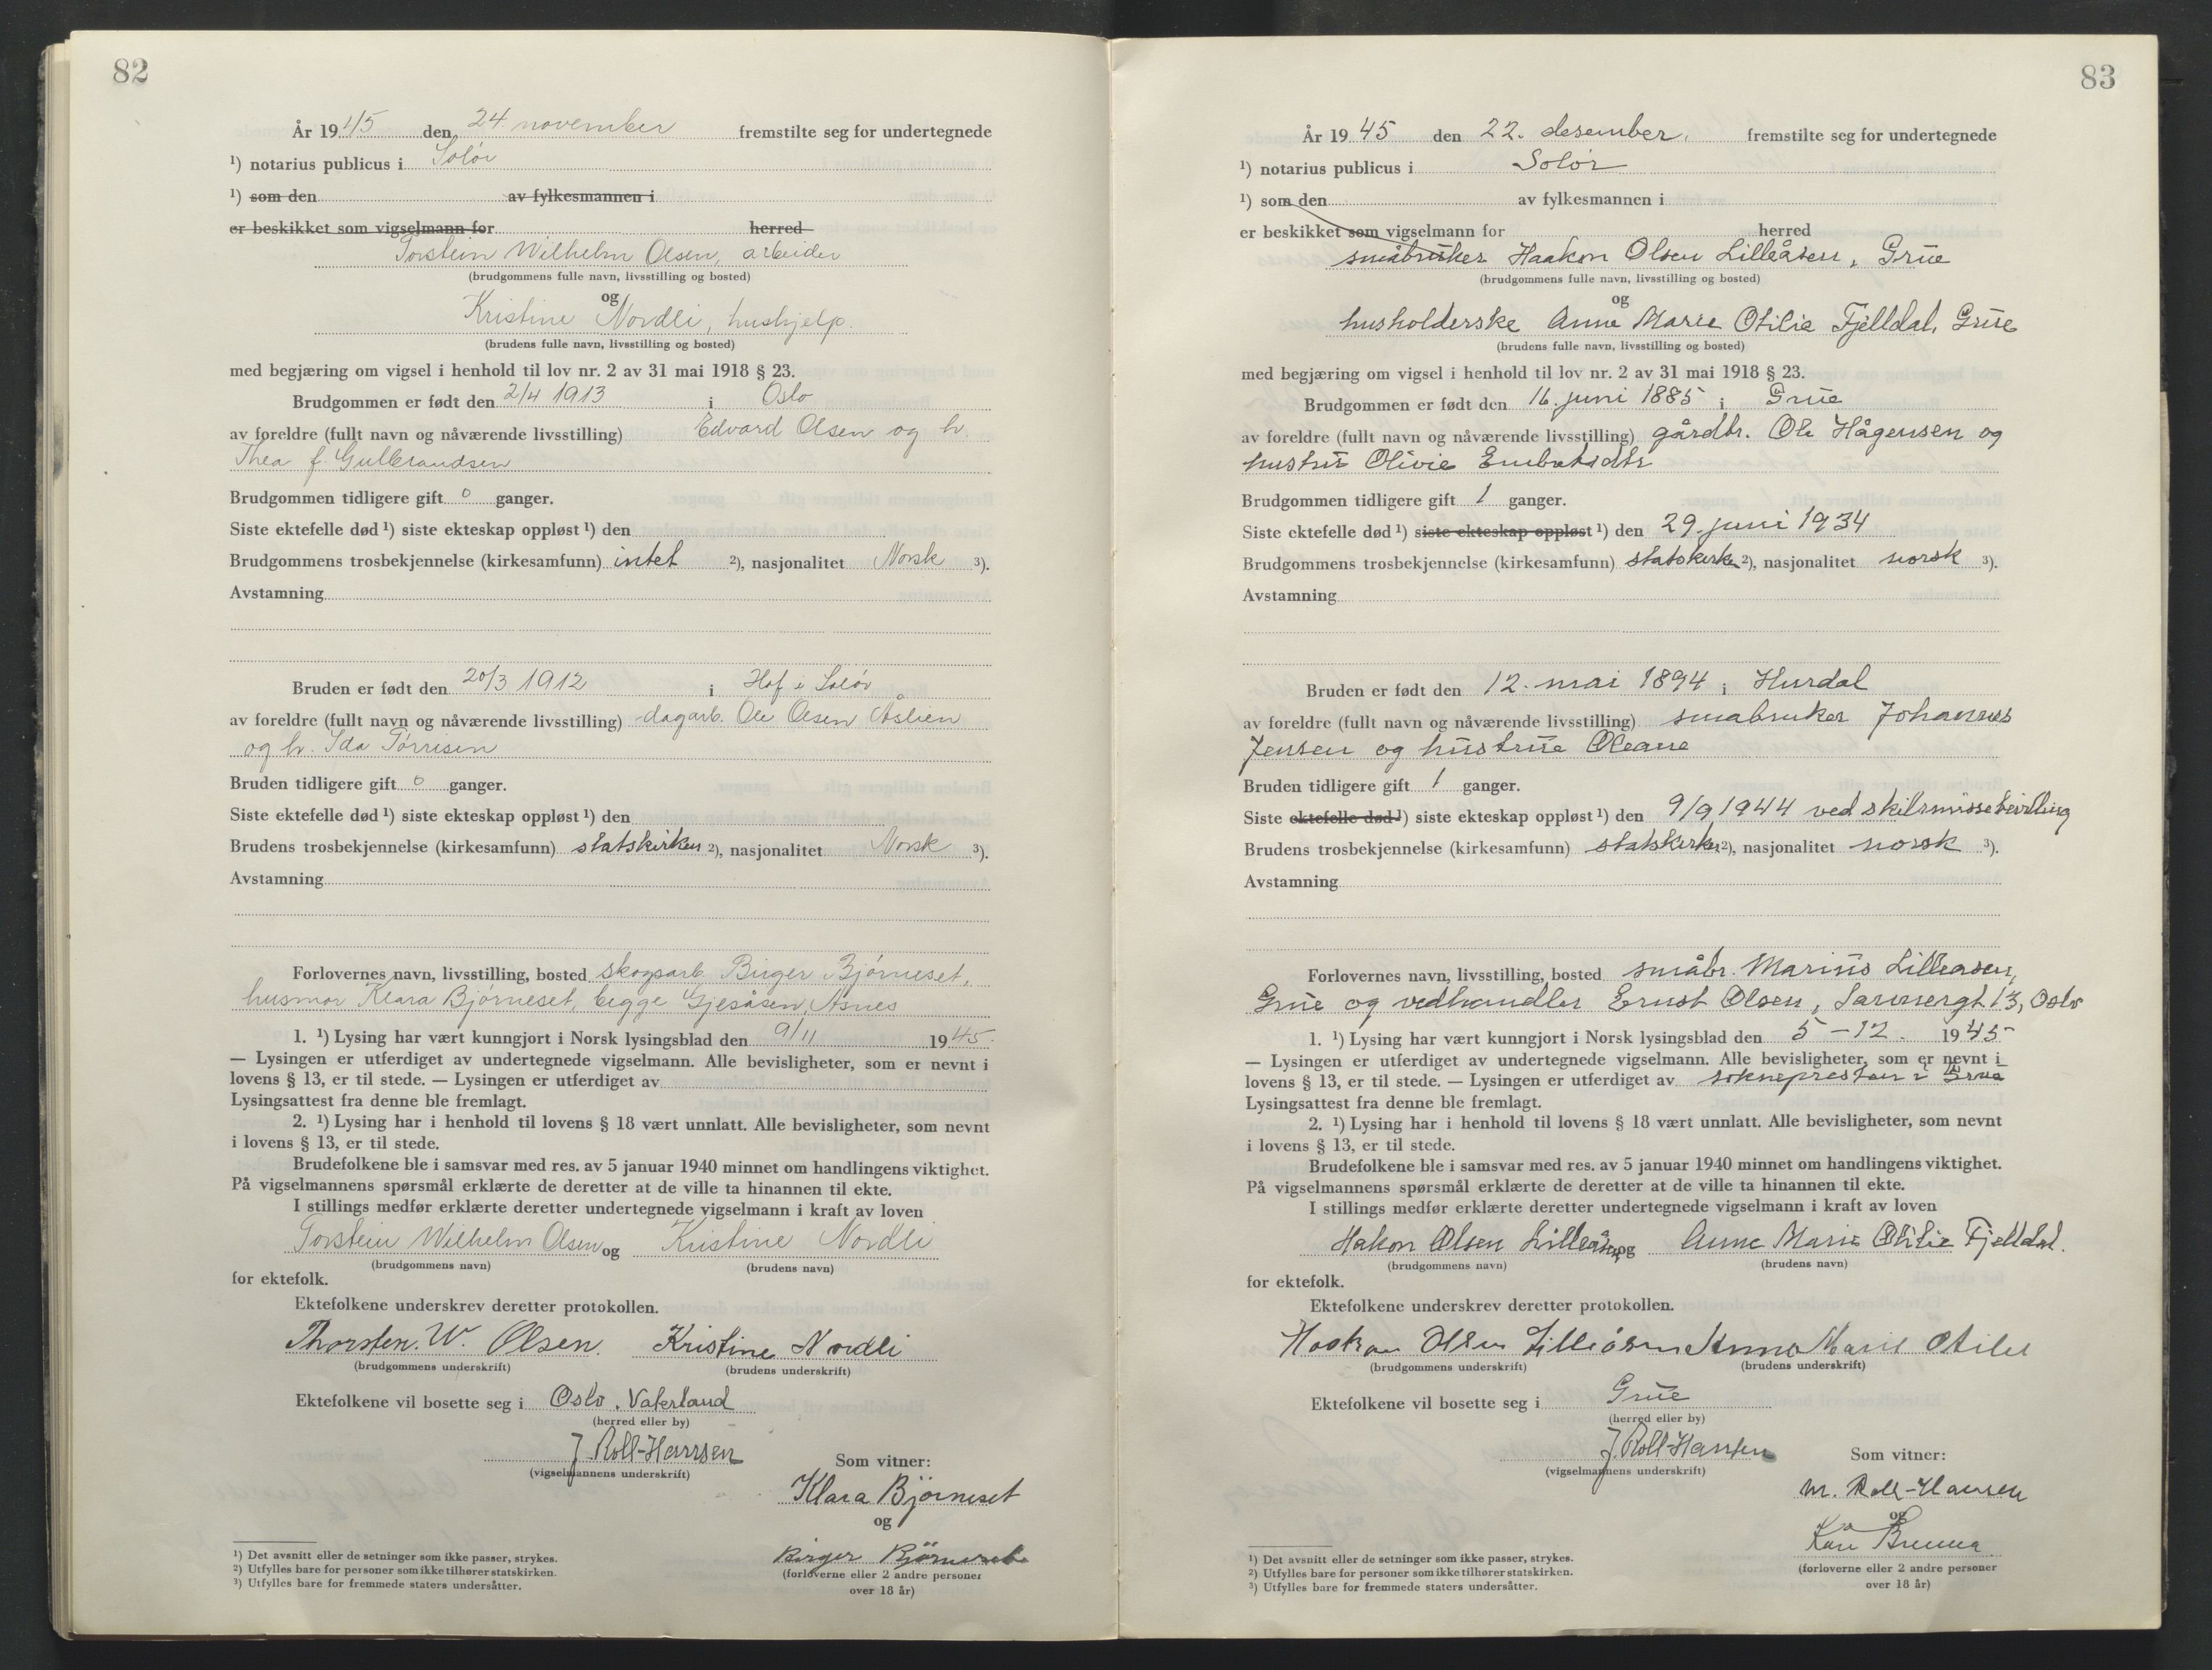 82
År 1945 den 24. november fremstilte seg for undertegnede
¹) notarius publicus i Solør
¹) som den av fylkesmannen i
er beskikket som vigselmann for herred
Torstein Wilhelm Olsen, arbeider
(brudgommens fulle navn, livsstilling og bosted)
og
Kristine Nordli, hushjelp.
(brudens fulle navn, livsstilling og bosted)
med begjæring om vigsel i henhold til lov nr. 2 av 31 mai 1918 § 23.
Brudgommen er født den 2/4 1913 i Oslo
av foreldre (fullt navn og nåværende livsstilling) Edvard Olsen og h.
Thea f. Gulbrandsen
Brudgommen tidligere gift 0 ganger.
Siste ektefelle død ¹) siste ekteskap oppløst ¹) den
Brudgommens trosbekjennelse (kirkesamfunn) intet ²), nasjonalitet Norsk ³).
Avstamning
Bruden er født den 20/3 1912 i Hof i Solør
av foreldre (fullt navn og nåværende livsstilling) dagarb. Ole Olsen Åslien
og h. Ida Tørrisen
Bruden tidligere gift 0 ganger.
Siste ektefelle død ¹) siste ekteskap oppløst ¹) den
Brudens trosbekjennelse (kirkesamfunn) statskirken ²), nasjonalitet Norsk ³).
Avstamning
Forlovernes navn, livsstilling, bosted skogsarb. Birger Bjørneset,
husmor Klara Bjørneset, begge Gjesåsen, Åsnes
1. ¹) Lysing har vært kunngjort i Norsk lysingsblad den 9/11 1945.
— Lysingen er utferdiget av undertegnede vigselmann. Alle bevisligheter, som er nevnt i
lovens § 13, er til stede. — Lysingen er utferdiget av
Lysingsattest fra denne ble fremlagt.
2. ¹) Lysing har i henhold til lovens § 18 vært unnlatt. Alle bevisligheter, som nevnt
i lovens § 13, er til stede.
Brudefolkene ble i samsvar med res. av 5 januar 1940 minnet om handlingens viktighet.
På vigselmannens spørsmål erklærte de deretter at de ville ta hinannen til ekte.
I stillings medfør erklærte deretter undertegnede vigselmann i kraft av loven
Torstein Wilhelm Olsen og Kristine Nordli
(brudgommens navn) (brudens navn)
for ektefolk.
Ektefolkene underskrev deretter protokollen.
Thorsten. W. Olsen. Kristine Nordli
(brudgommens underskrift) (brudens underskrift)
Ektefolkene vil bosette seg i Oslo, Vaterland
(herred eller by)
J. Roll-Hansen
(vigselmannens underskrift)
Som vitner:
Klara Bjørneset
og
Birger Bjørneset
(forloverne eller 2 andre personer
over 18 år)
¹) Det avsnitt eller de setninger som ikke passer, strykes.
²) Utfylles bare for personer som ikke tilhører statskirken.
³) Utfylles bare for fremmede staters undersåtter.
83
År 1945 den 22. desember. fremstilte seg for undertegnede
¹) notarius publicus i Solør
¹) som den av fylkesmannen i
er beskikket som vigselmann for herred
småbruker Haakon Olsen Lilleåsen, Grue
(brudgommens fulle navn, livsstilling og bosted)
og
husholderske Anne Marie Otilie Fjelldal, Grue
(brudens fulle navn, livsstilling og bosted)
med begjæring om vigsel i henhold til lov nr. 2 av 31 mai 1918 § 23.
Brudgommen er født den 16. juni 1885 i Grue
av foreldre (fullt navn og nåværende livsstilling) gårdbr. Ole Hågensen og
hustru Olivie Embretsdtr
Brudgommen tidligere gift 1 ganger.
Siste ektefelle død ¹) siste ekteskap oppløst ¹) den 29. juni 1934
Brudgommens trosbekjennelse (kirkesamfunn) statskirken ²), nasjonalitet norsk ³).
Avstamning
Bruden er født den 12. mai 1894 i Hurdal
av foreldre (fullt navn og nåværende livsstilling) småbruker Johannes
Jensen og hustrue Oleane
Bruden tidligere gift 1 ganger.
Siste ektefelle død ¹) siste ekteskap oppløst ¹) den 9/9 1944 ved skilsmissebevilling
Brudens trosbekjennelse (kirkesamfunn) statskirken ²), nasjonalitet norsk ³).
Avstamning
Forlovernes navn, livsstilling, bosted småbr. Marius Lilleåsen,
Grue og vedhandler Ernst Olsen, 13, Oslo
1. ¹) Lysing har vært kunngjort i Norsk lysingsblad den 5-12. 1945
— Lysingen er utferdiget av undertegnede vigselmann. Alle bevisligheter, som er nevnt i
lovens § 13, er til stede. — Lysingen er utferdiget av soknepresten i Grue
Lysingsattest fra denne ble fremlagt.
2. ¹) Lysing har i henhold til lovens § 18 vært unnlatt. Alle bevisligheter, som nevnt
i lovens § 13, er til stede.
Brudefolkene ble i samsvar med res. av 5 januar 1940 minnet om handlingens viktighet.
På vigselmannens spørsmål erklærte de deretter at de ville ta hinannen til ekte.
I stillings medfør erklærte deretter undertegnede vigselmann i kraft av loven
Hakon Olsen Lilleåsen og Anne Marie Otilie Fjelldal.
(brudgommens navn) (brudens navn)
for ektefolk.
Ektefolkene underskrev deretter protokollen.
Haakon Olsen Lilleåsen Anna Marie Otilie
(brudgommens underskrift) (brudens underskrift)
Ektefolkene vil bosette seg i Grue
(herred eller by)
J. Roll-Hansen
(vigselmannens underskrift)
Som vitner:
M. Roll-Hansen
og
Kåre
(forloverne eller 2 andre personer
over 18 år)
¹) Det avsnitt eller de setninger som ikke passer, strykes.
²) Utfylles bare for personer som ikke tilhører statskirken.
³) Utfylles bare for fremmede staters undersåtter.